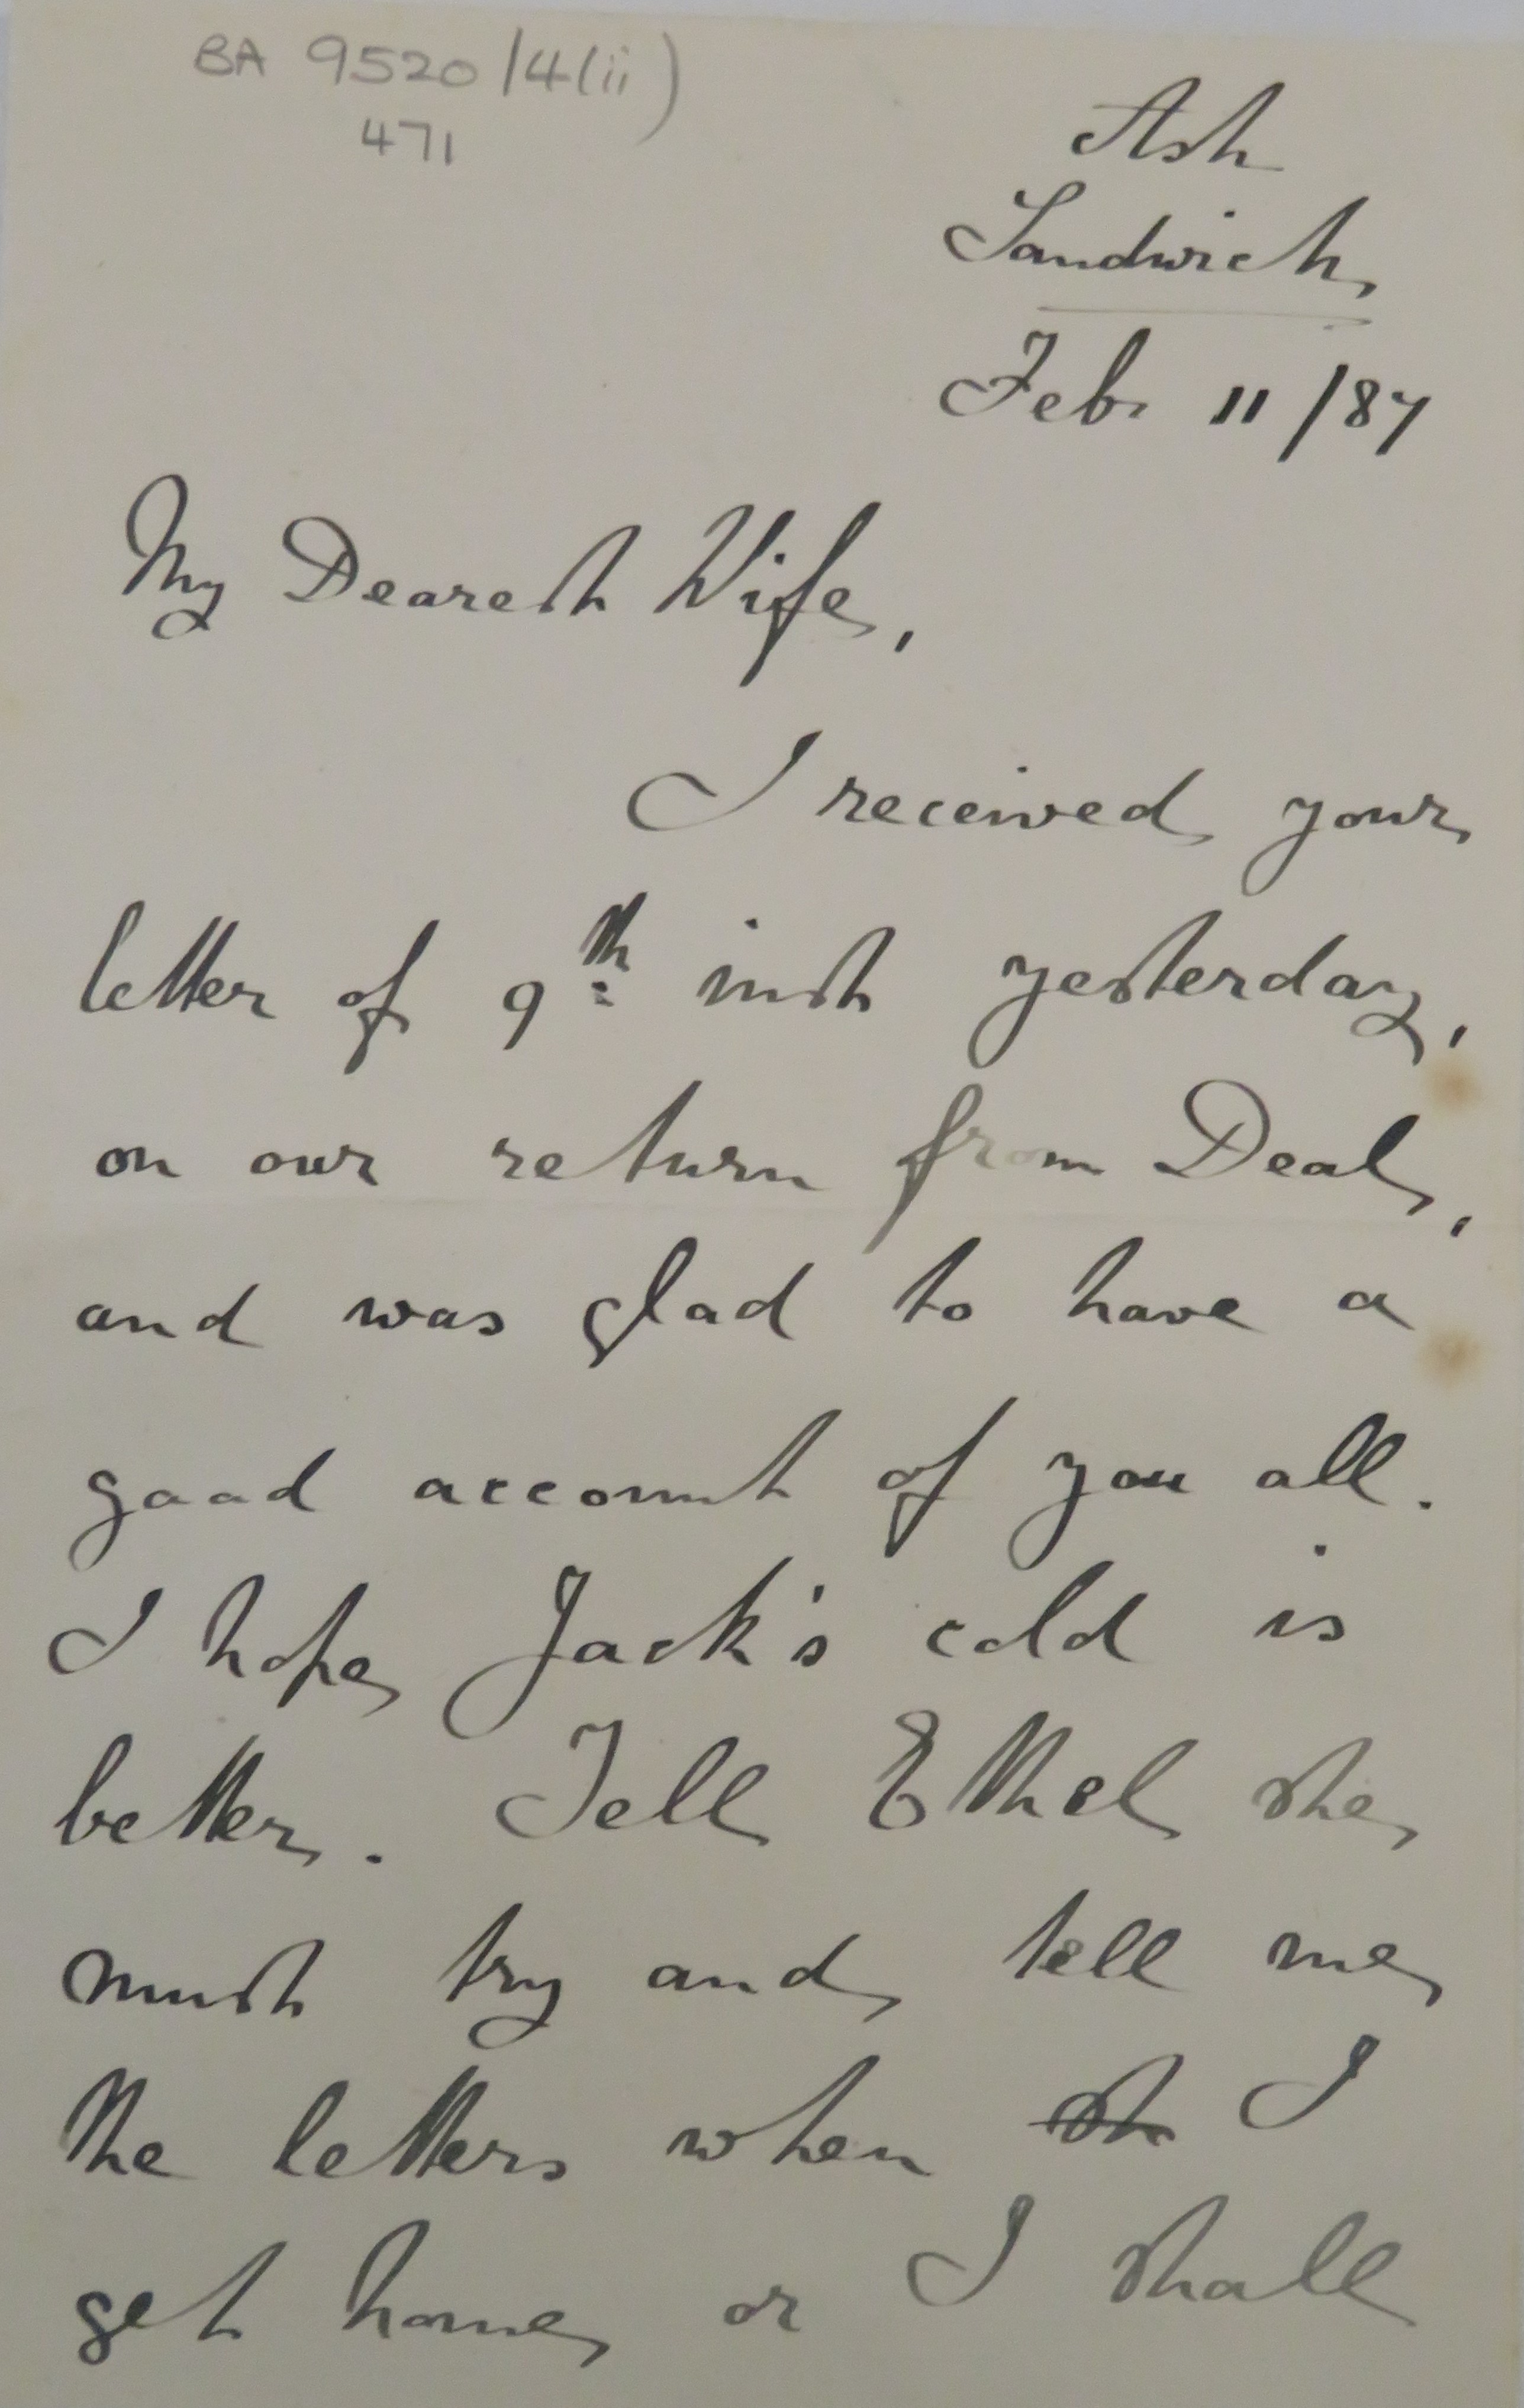 BA 9520/4(ii)
471
Ash
Sandwich
Feb. 11/87
My Dearest Wife,
I received your
letter of 9th inst yesterday,
on our return from Deal,
and was glad to have a
good account of you all.
I hope Jack's cold is
better. Tell Ethel she
must try and tell me
the letters when sh I
get home or I shall